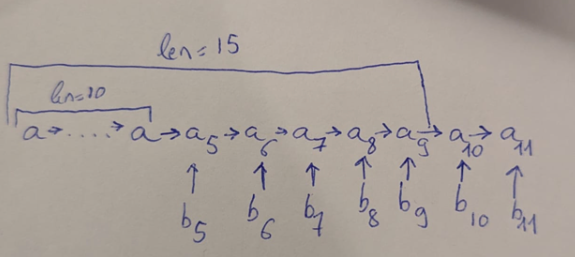 len=15
len=10
a→....→a→a₅→a₆→a₇→a₈→a₉→a₁₀→a₁₁
↑ ↑ ↑ ↑ ↑ ↑ ↑
b₅ b₆ b₇ b₈ b₉ b₁₀ b₁₁